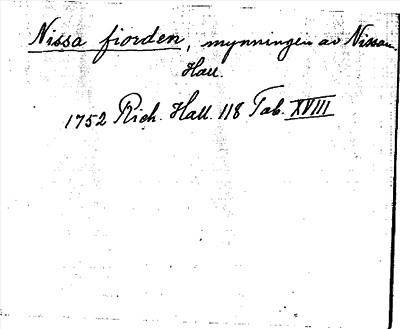 Nissa fiorden, mynningen av Nissan.
Hall.
1752 Rich. Hall. 118 Tab. XVIII